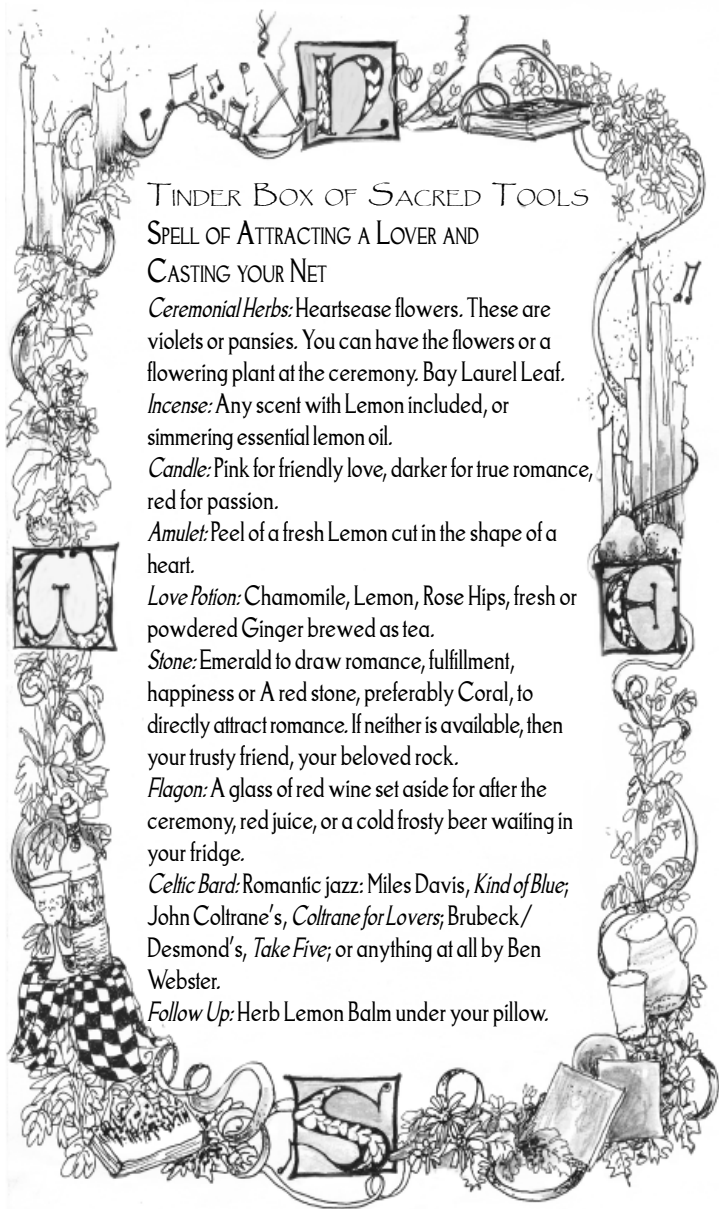 n
TINDER BOX OF SACRED TOOLS
SPELL OF ATTRACTING A LOVER AND
CASTING YOUR NET
Ceremonial Herbs: Heartsease flowers. These are
violets or pansies. You can have the flowers or a
flowering plant at the ceremony. Bay Laurel Leaf.
Incense: Any scent with Lemon included, or
simmering essential lemon oil.
Candle: Pink for friendly love, darker for true romance,
red for passion.
Amulet: Peel of a fresh Lemon cut in the shape of a
heart.
w
e
Love Potion: Chamomile, Lemon, Rose Hips, fresh or
powdered Ginger brewed as tea.
Stone: Emerald to draw romance, fulfillment,
happiness or A red stone, preferably Coral, to
directly attract romance. If neither is available, then
your trusty friend, your beloved rock.
Flagon: A glass of red wine set aside for after the
ceremony, red juice, or a cold frosty beer waiting in
your fridge.
Celtic Bard: Romantic jazz: Miles Davis, Kind of Blue;
John Coltrane's, Coltrane for Lovers; Brubeck/
Desmond's, Take Five; or anything at all by Ben
Webster.
Follow Up: Herb Lemon Balm under your pillow.
S